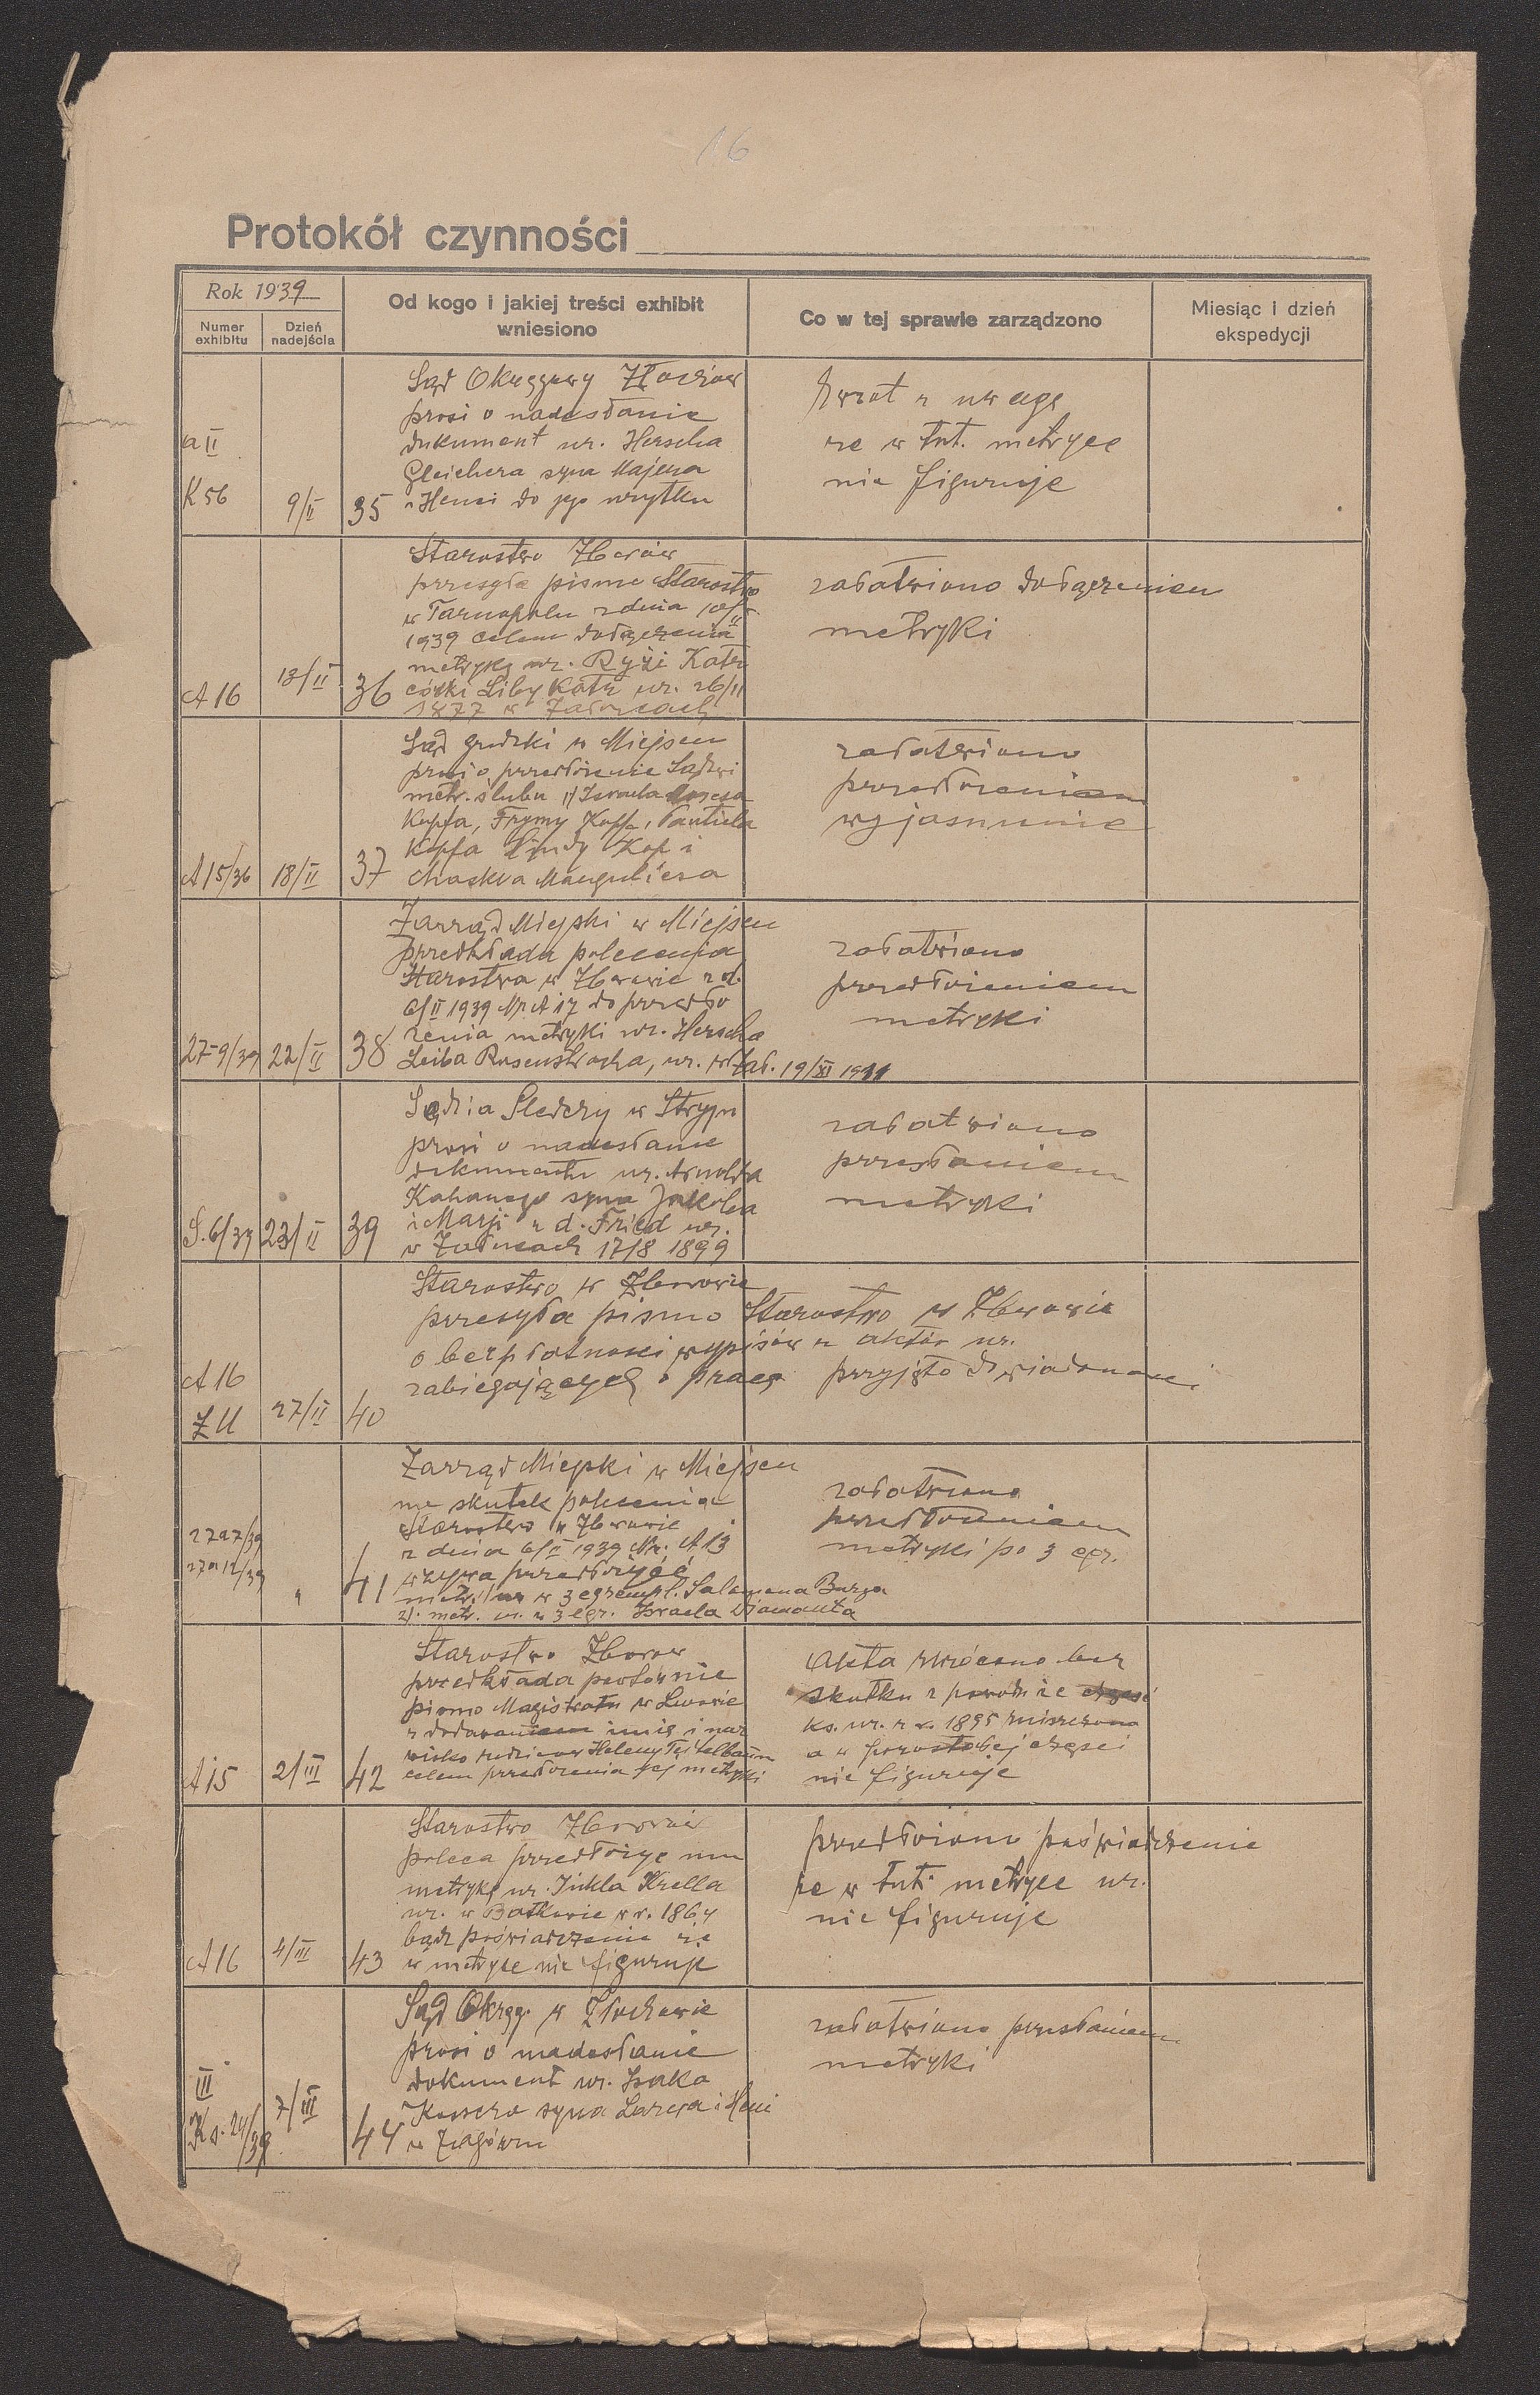 16
Protokół czynności
Rok 1939
Numer exhibitu
Dzień nadejścia
Od kogo i jakiej treści exhibit wniesiono
Co w tej sprawie zarządzono
Miesiąc i dzień ekspedycji
a II
K 56
9/II
35
Sąd Okręgowy Złoczów
prosi o nadesłanie
dokument ur. Herscha
Gleichera syna Majera
i Henci do jego użytku
Zwrot z uwagą
że w tut. metryce
nie figuruje
A 16
13/II
36
Starostwo Zborów
przesyła pismo Starostwo
w Tarnopolu z dnia 10/II
1939 celem dołączenia
metrykę ur. Ryżi Katz
córki Liby Katz ur. 26/11
1877 w Załoźcach
załatwiono dołączeniem
metryki
A 15/36
18/II
37
Sąd grodzki w Miejscu
prosi o przedłożenie Sądowi
metr. ślubu 1/ Israela
Kopfa, Frymy Kopfa,
Kopfa Lindy Kop i
Chaskla Manguliesa
załatwiono
przedłożeniem
wyjaśnienie
27-9/39
22/II
38
Zarząd Miejski w Miejscu
przedkłada polecenia
Starostwa w Zborowie z d.
6/II 1939 Nr. A 17 do przedło
żenia metryki ur. Herscha
Leiba Rosenstocka, ur. w Zał. 19/XI 1911
załatwiono
przedłożeniem
metryki
S. 6/39
23/II
39
Sędzia Śledczy w Stryju
prosi o nadesłanie
dokumentu ur. Arnolda
Kahanego syna Jakoba
i Marji z d. Fried ur.
w Załoźcach 17/8 1899
załatwiono
przesłaniem
metryki
A 16
Z U
27/II
40
Starostwo w Zborowie
przesyła pismo Starostwo w Zborowie
o bezpłatności wypisów z aktów ur.
zabiegających o pracę
przyjęto do wiadomości
27a7/39
27a12/39
"
41
Zarząd Miejski w Miejscu
na skutek polecenia
Starostwo w Zborowie
z dnia 6/II 1939 Nr. A 13
wzywa przedłożyć
metr. 1/ ur w 3 egzempl. Salamona Barga
2/. metr. ur. w 3 egz. Israela Diamanta
załatwiono
przedłożeniem
metryki po 3 egz.
A 15
2/III
42
Starostwo Zborów
przedkłada powtórnie
pismo Magistratu w Lwowie
z dodawaniem imię i naz
wisko rodziców Heleny Teitelbaum
celem przedłożenia jej metryki
Akta zwrócono bez
skutku z powodu że część
ks. ur. z r. 1895 zniszczona
a w pozostałej części
nie figuruje
A 16
4/III
43
Starostwo Zborów
poleca przedłożyć mu
metrykę ur. Jukla Krella
ur. w Batkowie w r. 1864
bądź poświadczenie że
w metryce nie figuruje
przedłożono poświadczenie
że w tut. metryce ur.
nie figuruje
III
Ks. 24/39
7/III
44
Sąd Okręg. w Złoczowie
prosi o nadesłanie
dokument ur. Izaka
syna Lazera i Heni
w
załatwiono przesłaniem
metryki